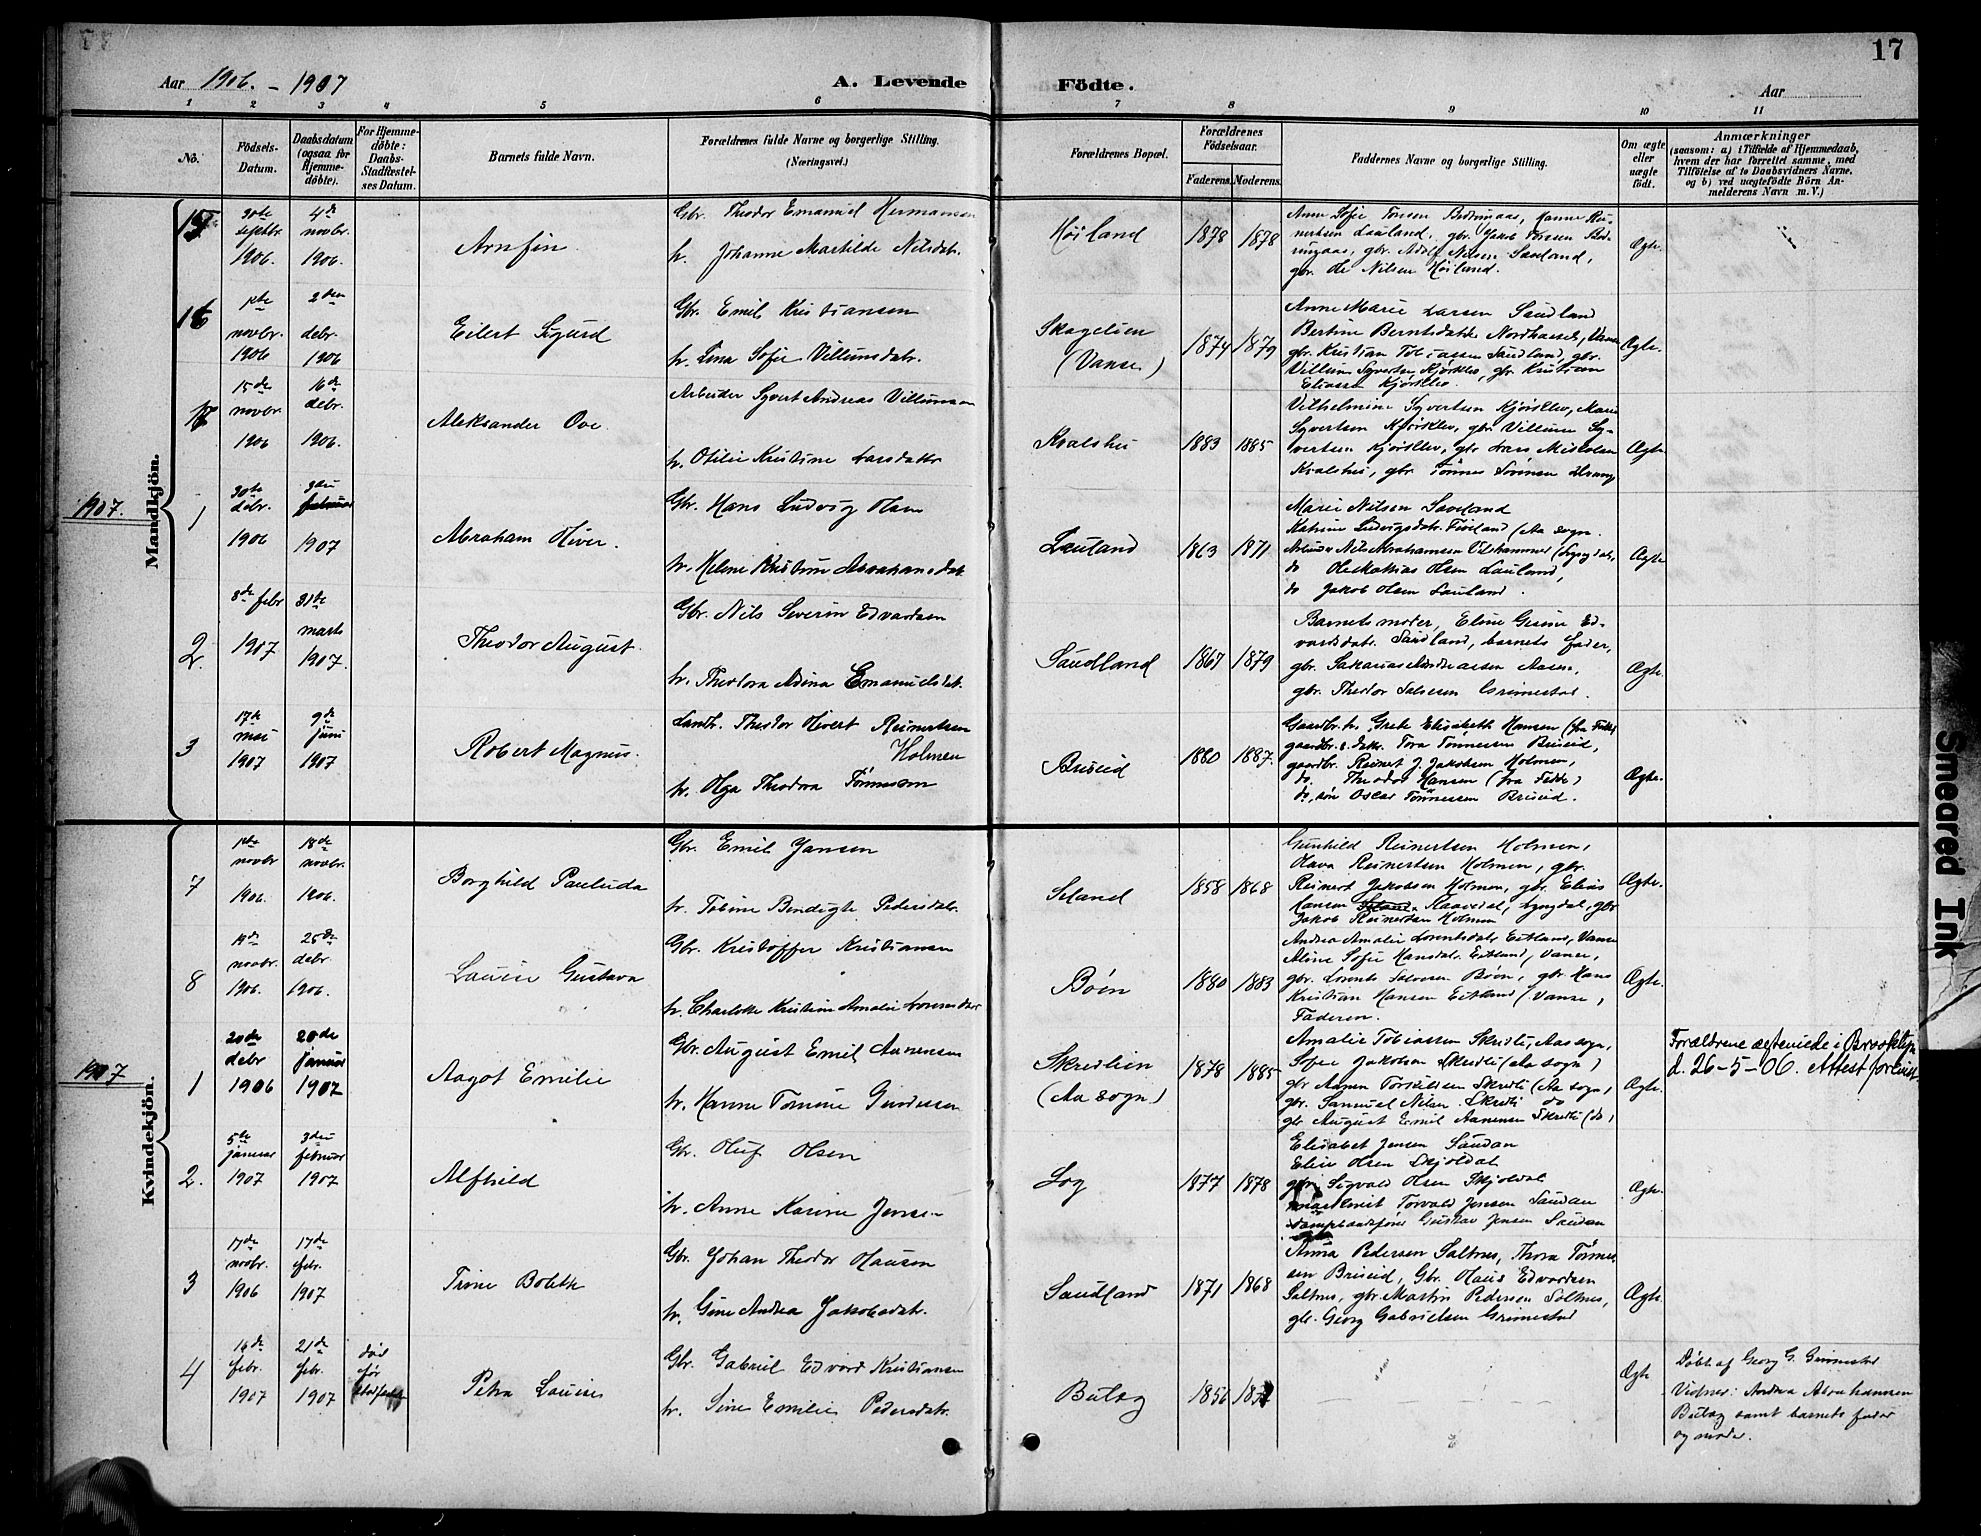 17
Aar 1906. – 1907 A. Levende Födte. Aar
1 2 3 4 5 6 7 8 9 10 11
No.
Födsels-Datum.
Daabsdatum (ogsaa for Hjemme-døbte).
For Hjemme-døbte: Daabs-Stadfæstel-ses Datum.
Barnets fulde Navn.
Forældrenes fulde Navne og borgerlige Stilling.
(Næringsvei.)
Forældrenes Bopæl.
Forældrenes Födselsaar.
Faderens. Moderens.
Faddernes Navne og borgerlige Stilling.
Om ægte eller uægte født.
Anmærkninger
(saasom: a) i Tilfælde af Hjemmedaab,
hvem der har forrettet samme, med
Tilföielse af to Daabsvidners Navne,
og b) ved uægtefödte Börn An-
melderens Navn m. V.)
Mandkjön.
15 30te septbr. 1906. 4de novbr. 1906.
Arnfin
Gbr. Theodor Emanuel Hermansen
h. Johanne Martilde Nilsdatr.
Høiland 1878 1878
Anne Sofie Tønsen
nertsen Lauland, gbr. Jakob Tønsen
gbr. Adolf Nilsen Saveland,
gbr. Ole Nilsen Høiland.
Ægte.
16 1ste novbr. 1906 2den debr. 1906
Eilert Sigurd
Gbr. Emil Kristiansen
h. Lina Sofie Villumsdatr.
Skagelien (Vanse) 1874 1879
Anne Marie Larsen Saudland
Bertine Berntsdatter Nordhassel, Vanse
gbr. Kristian Tobiassen Saudland, gbr.
Villum Syvertsen Kjørklev, gbr Kristian
Eliassen Kjørklev.
Ægte.
17 15de novbr. 1906 16de debr. 1906.
Aleksander Ove.
Arbeider Syvert Andreas Villumsen
h. Otilie Kristine Larsdatter
Kvalshei 1883 1885
Vilhelmine Syvertsen Kjørklev, Marie
Syvertsen Kjørklev, gbr. Villum Sy-
vertsen Kjørklev, gbr Lars
Kvalshei, gbr Tønnes
Ægte
1907.
1 30te debr. 1906 3die februar 1907
Abraham Hiver.
Gbr. Hans Ludvig Olsen
h. Helene Kristine Abrahamsdat.
Lauland 1863 1871
Marie Nilsen Saveland
Katrine Ludvigsdatr. (Aa sogn.
Nils Abrahamsen
do Ole Mathias Olsen Lauland,
do Jakob Olsen Lauland.
Ægte
2. 8de febr 1907 31te marts 1907.
Theodor August.
Gbr. Nils Severin Edvardsen
h. Theodora Adina Emanuelsdat.
Saudland 1867 1879
Barnets moder, Eline Gurine Ed-
vardsdatr. Saudland, barnets fader,
gbr. Sakarias Andreassen Aasen,
gbr. Theodor Salvesen Grimestad.
Ægte.
3 17de mai 1907 9de juni 1907
Robert Magnus.
Landh. Theodor Hivert Reinertsen
Holmen
h. Olga Theodora Tønnessen
Briseid 1880 1887.
Gaardbr. h. Grete Elisabeth Hansen (fra Fedde)
gaardbr. datr. Tora Tønnessen Briseid,
gaardbr. Reinert J. Jakobsen Holmen,
do. Theodor Hansen (fra Fedde)
do. søn Oscar Tønnessen Briseid.
Ægte.
Kvindekjön.
7 1ste novbr 1906. 18de novbr. 1906.
Borghild Paulida
Gbr. Emil Jansen
h. Tobine Bendigte Pedersdatr.
Seland 1858 1868
Gunhild Reinertsen Holmen,
Olava Reinertsen Holmen, gbr.
Reinert Jakobsen Holmen, gbr. Elias
Hansen Lyngdal, gbr
Jakob Reinertsen Holmen
Ægte.
8 19de novbr. 1906. 25de debr. 1906.
Lauise Gustava
Gbr. Kristoffer Kristiansen
h. Charlotte Kristine Amalie Lorensdatr
Bøen 1880 1883
Andrea Amalie Lorentsdatr Eitland, Vanse
Aline Sofie Hansdatr. Eitland, Vanse,
gbr. Lorents Salvesen Bøen, gbr. Hans
Kristian Hansen Eitland (Vanse,
Faderen.
Ægte.
1907
1 20de debr 1906 20de januar 1907
Aagot Emilie
Gbr. August Emil Aanensen
h. Hanne Tomine Gundersen
Skredlien (Aa sogn) 1878 1885
Amalie Tobiassen Skredli, Aa sogn,
Sofie Jakobsen Skredli (Aa sogn)
gbr Aanen Torkelsen Skredli (Aa sogn,
gbr. Samuel Nilsen Skredli do
gbr August Emil Aanensen Skredli (do)
Ægte.
Forældrene ægteviede i Brooklyn
d. 26-5-06. Attest forevist.
2. 5te januar 1907 3die februar 1907
Alfhild
Gbr. Oluf Olsen
h. Anne Karine Jensen
Log 1877 1878
Elisabet Jensen Saudan
Elise Olsen Skjoldal
gbr. Sigvald Olsen Skjoldal
Torvald Jensen Saudan
Gustav Jensen Saudan
Ægte.
3 17de novbr. 1906 17de febr. 1907
Tine Bolette
Gbr. Johan Theodor Hansen
h. Gine Andrea Jakobsdatr.
Saudland 1871 1868
Anna Pedersen Saltnes, Thora Tønnes-
sen Briseid, Gbr. Hans Edvardsen
Saltnes, gbr Martin Pedersen Saltnes,
gbr. Georg Gabrielsen Grimestad
Ægte.
4 16de febr. 1907 21de febr. 1907 død før
Petra Louise
Gbr. Gabriel Edvard Kristiansen
h. Sine Emilie Pedersdatr.
Bulag 1856
Ægte
Døbt af Georg G. Grimestad
Vidner: Andrea Abrahamsen
Bulag samt barnets fader
og moder.
Smeared Ink